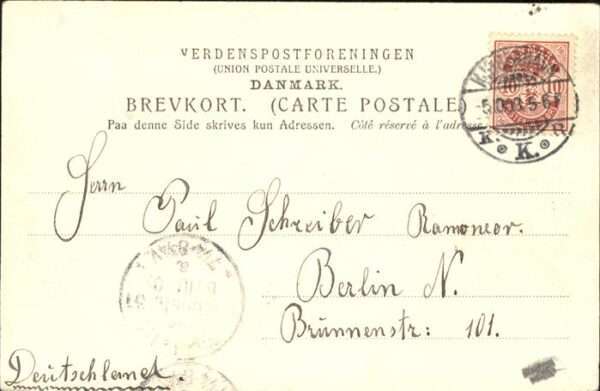 VERDENSPOSTFORENINGEN
(UNION POSTALE UNIVERSELLE.)
DANMARK.
BREVKORT. (CARTE POSTALE.)
Paa denne Side skrives kun Adressen. Côté réservé à l'adresse
10 10
5-6
K. K. R
Herrn
Paul Schreiber Ramoneor.
Berlin N.
Brunnenstr: 101.
Deutschland.